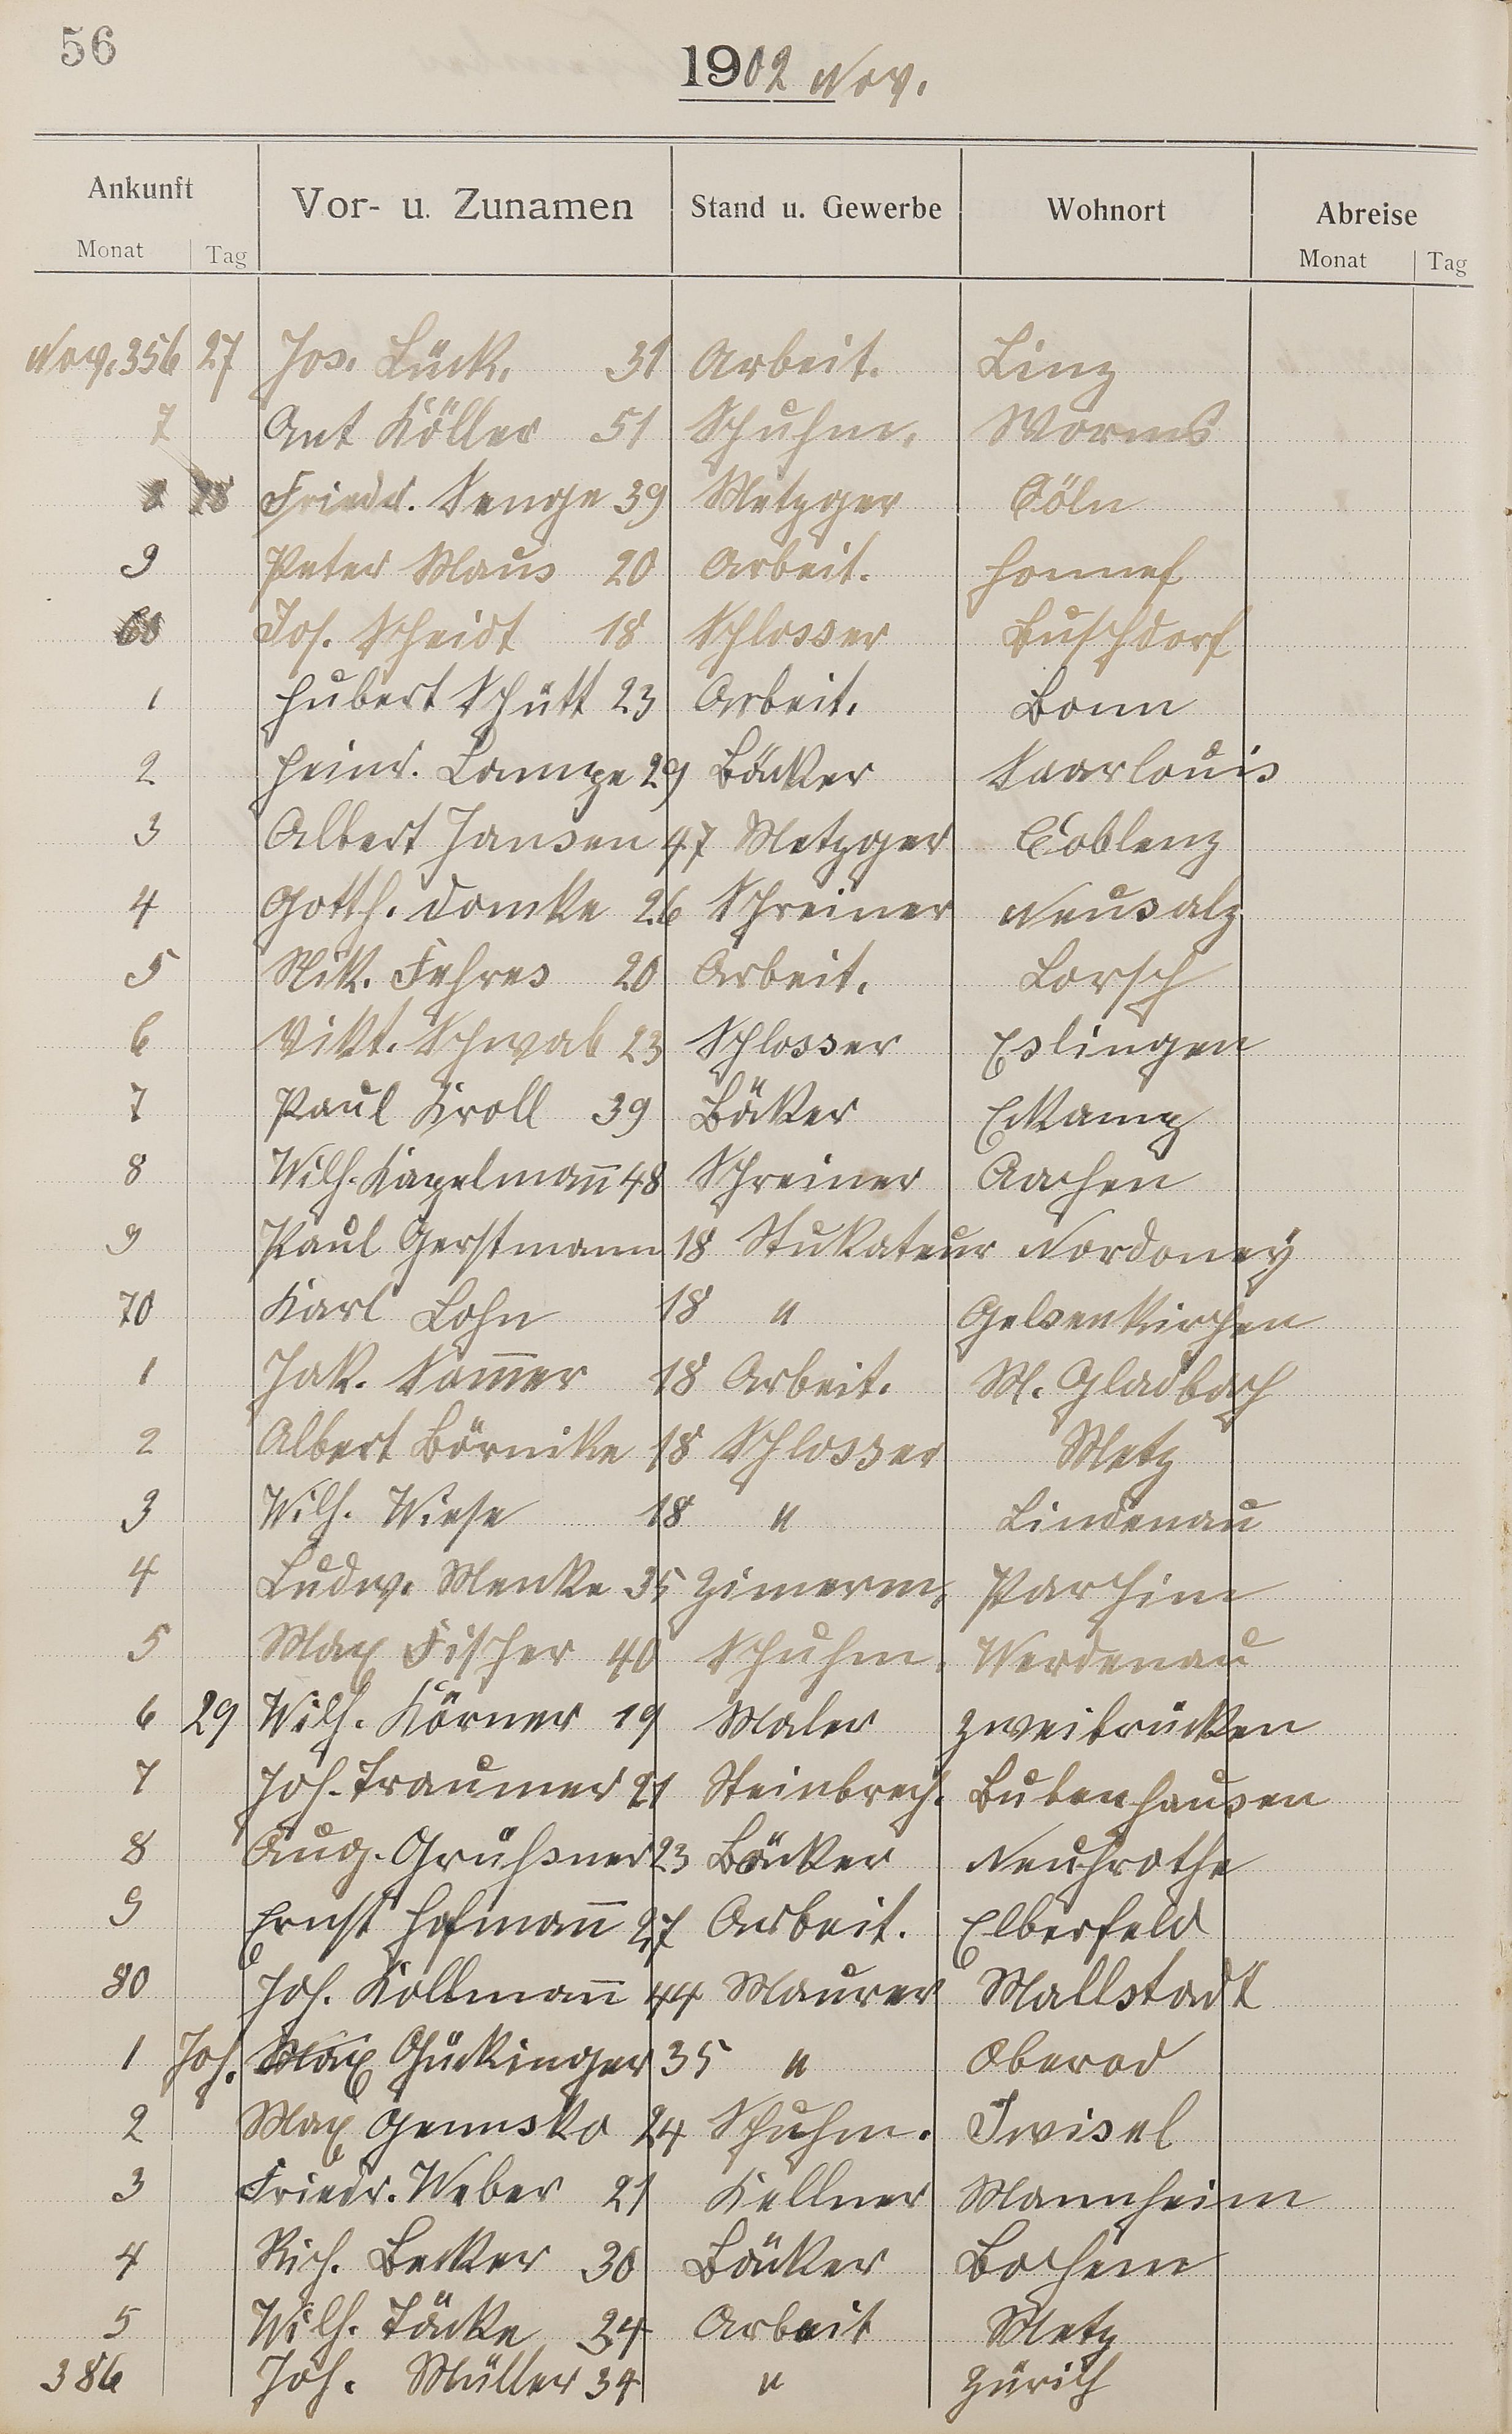 56
1902 Nov.
Ankunft Vor- u. Zunamen Stand u. Gewerbe Wohnort Abreise
Monat Tag Monat Tag
Nov. 356 27 Jos. Lück. 31 Arbeit. Linz
7 Ant Köller 51 Schuhm. Worms
8 28 Friedr. Senge 39 Metzger Cöln
9 Peter Maus 20 Arbeit. Honnef
60 Jos. Scheidt 18 Schlosser Buschdorf
1 Hubert Schütt 23 Arbeit. Bonn
2 Heinr. Lampe 29 Bäcker Saarlouis
3 Albert Jansen 47 Metzger Coblenz
4 Gotth. Domke 26 Schreiner Neusalz
5 Nik. Fehres 20 Arbeit. Lorsch
6 Vikt. Schwab 23 Schlosser Eslingen
7 Paul Kroll 39 Bäker Eckamp
8 Wilh. Kapelman̅n 48 Schreiner Aachen
9 Paul Gerstmann 18 Stukateur Nordoney
70 Karl Lohn 18 " Gelsenkirchen
1 Jak. Som̅er 18 Arbeit. M. Gladbach
2 Albert Börnike 18 Schlosser Metz
3 Wilh. Wiese 18 " Lindenau
4 Ludw. Menke 35 Zimerm. Parchim
5 Max Fischer 40 Schuhm. Werdenau
6 29 Wilh. Körner 19 Maler Zweibrücken
7 Joh. Traumer 21 Steinbrech. Bubenhausen
8 Aug. Grüßner 23 Bäcker Neuhrothe
9 Ernst Hofman̅n 27 Arbeit. Elberfeld
80 Joh. Kollman̅n 44 Maurer Mallstadt
1 Joh. Max Gückinger 35 " Oberod
2 Max Gemsko 24 Schuhm. Zwisel
3 Friedr. Weber 21 Kellner Mannheim
4 Rich. Becker 30 Bäcker Bochum
5 Wilh. Täcke 24 Arbeit Metz
386 Joh. Müller 34 " Zürich